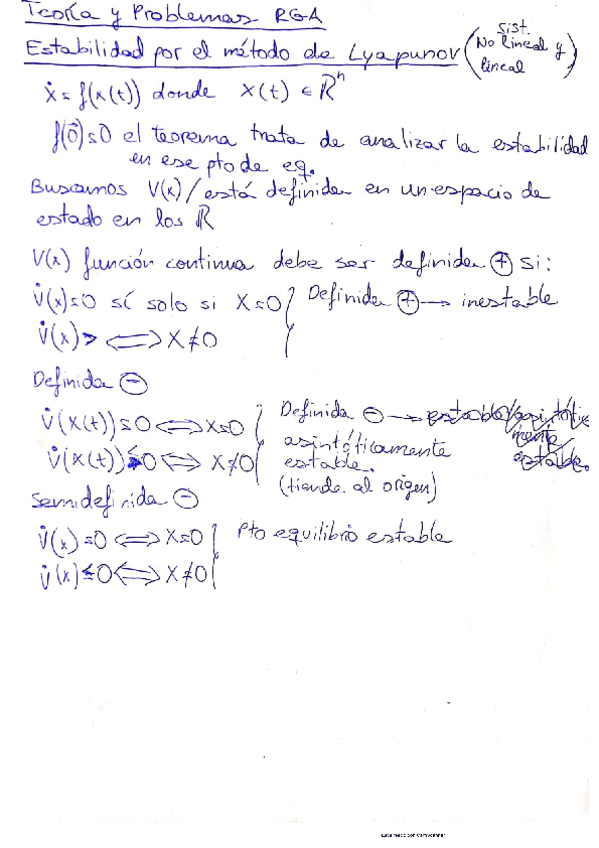 Teoría y Problemas RGA
Estabilidad por el método de Lyapunov (sist. No lineal y lineal)
ẋ = f(x(t)) donde x(t) ∈ ℝⁿ
f(0⃗)=0 el teorema trata de analizar la estabilidad
en ese pto de eq.
Buscamos V(x)/está definida en un espacio de
estado en los ℝ
V(x) función continua debe ser definida ⊕ si:
V̇(x)=0 sí solo si X=0 } Definida ⊕ → inestable
V̇(x)> ⟺ X≠0
Definida ⊖
V̇(X(t))=0 ⟺ X=0 } Definida ⊖ → estable/asintóticamente estable.
V̇(X(t))<0 ⟺ X≠0
asintóticamente
estable.
(tiende al origen)
Semidefinida ⊖
V̇(x)=0 ⟺ X=0 } Pto equilibrio estable
V̇(x)≤0 ⟺ X≠0